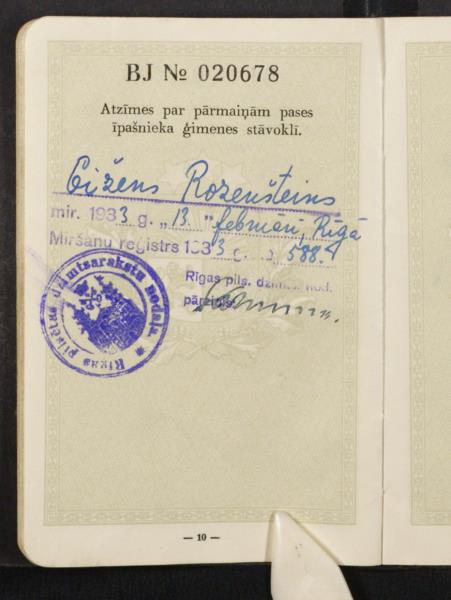 BJ № 020678
Atzīmes par pārmaiņām pases
īpašnieka ģimenes stāvoklī.
Eižens Rozenšteins
mir. 1933 g. „13." februārī, Rīgā
Miršanu reģistrs 1933 g. 588
Rīgas pils. dzimts. nod.
pārzinis:
Rīgas pilsētas dzimtsarakstu nodaļa.
— 10 —